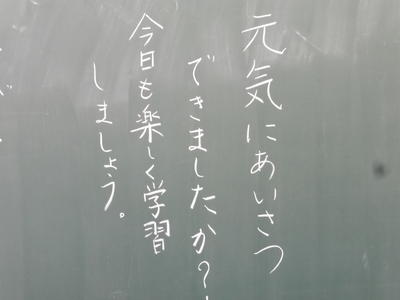 元気にあいさつ
できましたか?
今日も楽しく学習
しましょう。